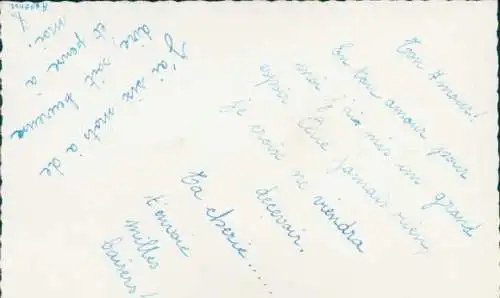 Ton Amour!
En ton amour pour
moi j'ai mis un grand
espoir Que jamais rien,
je crois ne viendra
decevoir.
Ta cherie.....
t'envoie
milles
baisers!
J'ai six mots a de
dire
et soit heureuse
et pense à
moi!